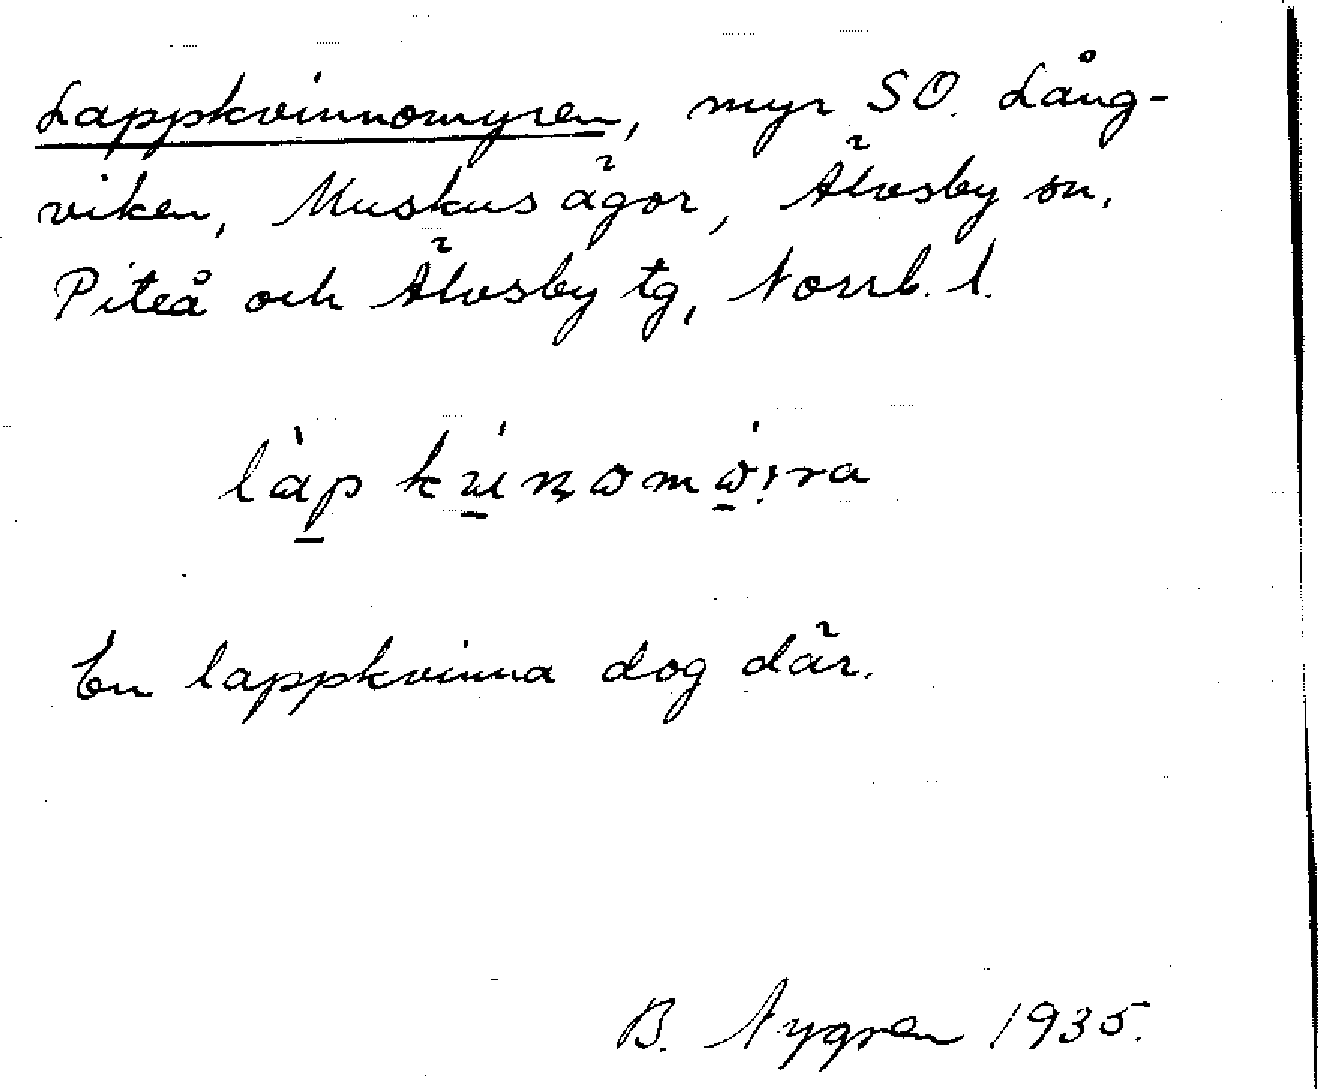 Lappkvinnomyren, myr SO. Lång-
viken, Muskus ägor, Älvsby sn,
Piteå och Älvsby tg, Norrb. l.
En lappkvinna dog där.
B. Nygren 1935.